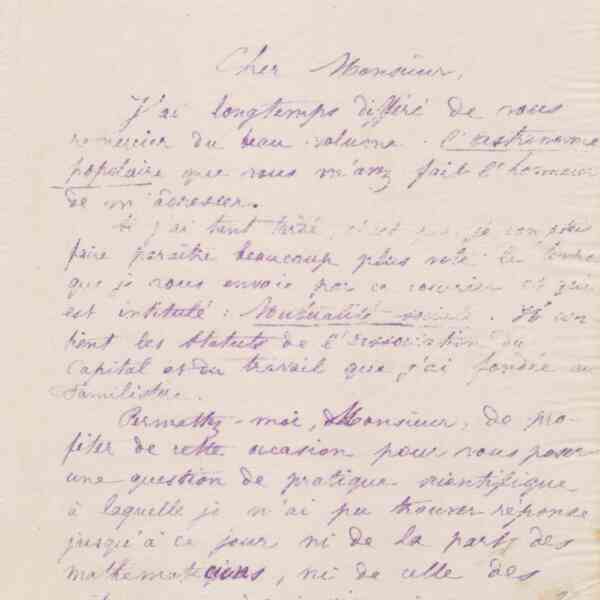 Cher Monsieur,
J'ai longtemps différé de vous
remercier du beau volume l'astronomie
populaire que vous m'avez fait l'honneur
de m'adresser.
Si j'ai tant tardé, c'est que je
faire paraître beaucoup plus tôt le
que je vous envoie par ce courrier et qui
est intitulé : Mutualité sociale. Il con
tient les statuts de l'association du
Capital et du travail que j'ai fondée au
Familistère.
Permettez-moi, Monsieur, de pro-
fiter de cette occasion pour vous poser
une question de pratique scientifique
à laquelle je n'ai pu trouver réponse
jusqu'à ce jour ni de la part des
mathématiciens, ni de celle des